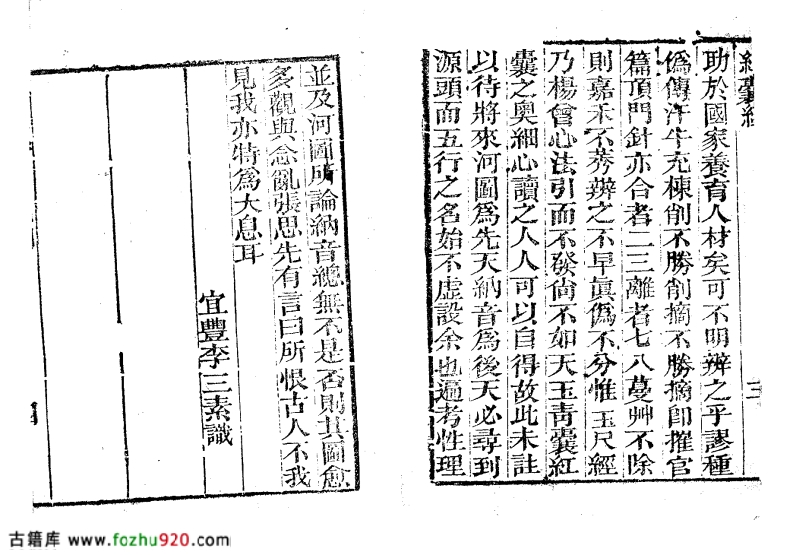 紅囊經
助於國家養育人材矣可不明辨之乎謬種
偽傳汗牛充棟削不勝削摘不勝摘即摧官
篇頂門針亦合者二三離者七八蔓艸不除
則嘉禾不莠辨之不早眞偽不分惟玉尺經
乃楊曾心法引而不發尙不如天玉靑囊紅
囊之奥細心讀之人人可以自得故此未註
以待將來河圖爲先天納音爲後天必尋到
源頭而五行之名始不虛設余也遍考性理
並及河圖所論納音總無不是否則其圖愈
多觀與念亂張思先有言曰所恨古人不我
見我亦特爲大息耳
宜豐李三素識
古籍库 www.fozhu920.com